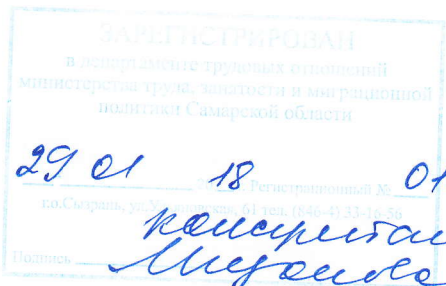 ЗАРЕГИСТРИРОВАН
в департаменте трудовых отношений
министерства труда, занятости и миграционной
политики Самарской области
29 01 18 Регистрационный № 01
г.о.Сызрань, 61 тел. (846-4) 33-16-56
Подпись